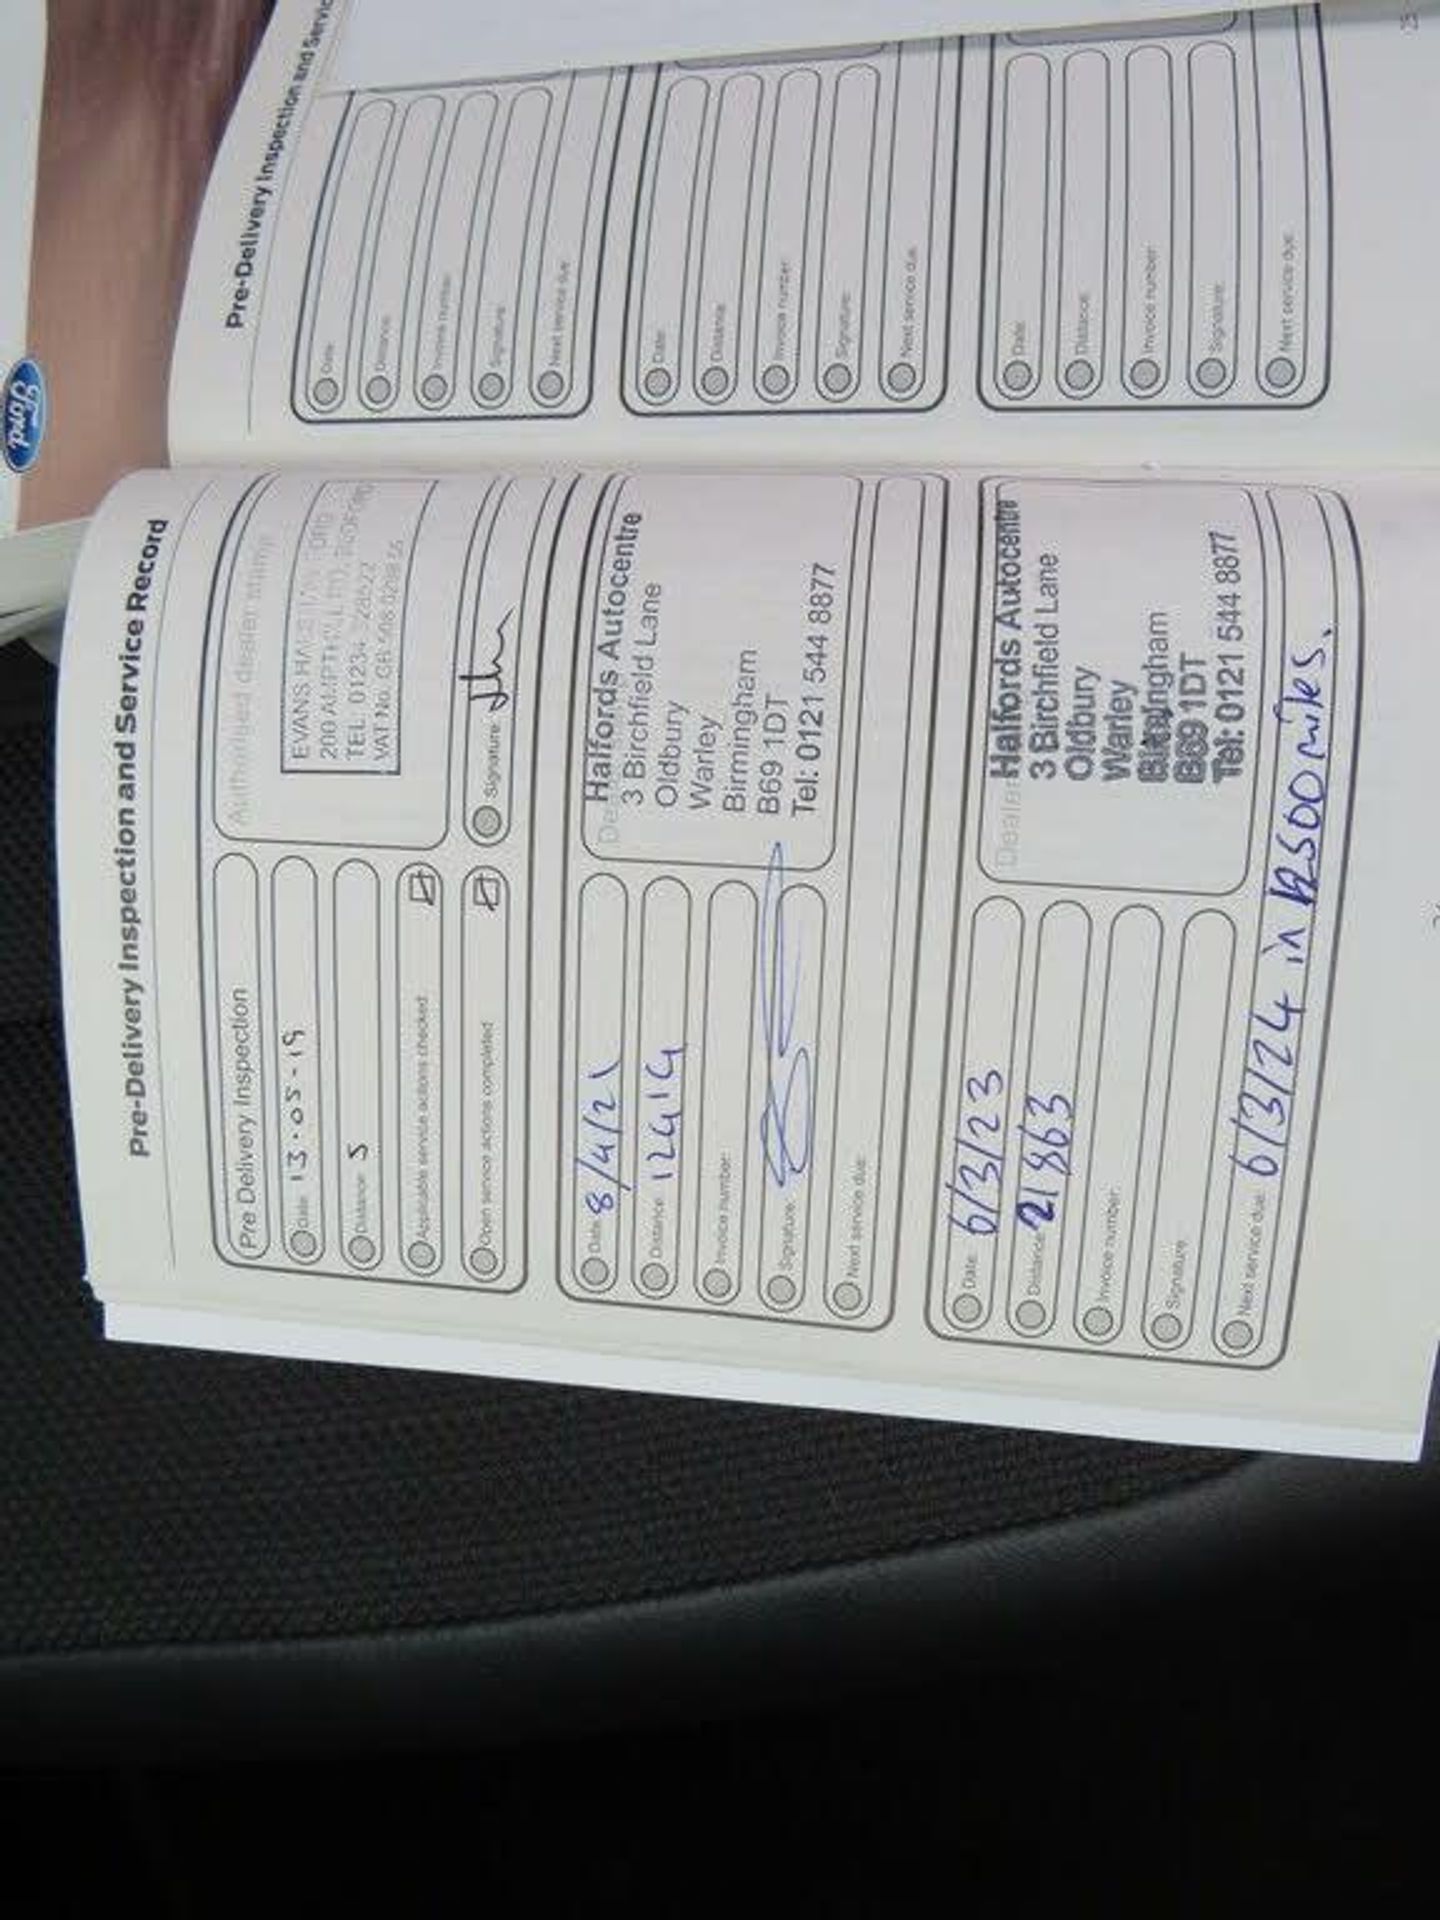 Ford
Pre-Delivery Inspection and Service Record
Pre Delivery Inspection
Date: 13.05-19
Distance: 5
Applicable service actions checked
Open service actions completed
Authorised dealer stamp
EVANS
200 AMPTHILL RD, BEDFORD
TEL. 01234
VAT No. GB
Signature:
Date: 8/4/21
Distance: 12414
Invoice number:
Signature:
Next service due:
Halfords Autocentre
3 Birchfield Lane
Oldbury
Warley
Birmingham
B69 1DT
Tel: 0121 544 8877
Date: 6/3/23
Distance: 21863
Invoice number:
Signature
Next service due: 6/3/24 in 12500 miles.
Dealer
Halfords Autocentre
3 Birchfield Lane
Oldbury
Warley
Birmingham
B69 1DT
Tel: 0121 544 8877
Pre-Delivery Inspection and Servic
Date:
Distance:
Invoice number:
Signature:
Next service due:
Date:
Distance:
Invoice number:
Signature:
Next service due:
Date:
Distance:
Invoice number:
Signature:
Next service due: